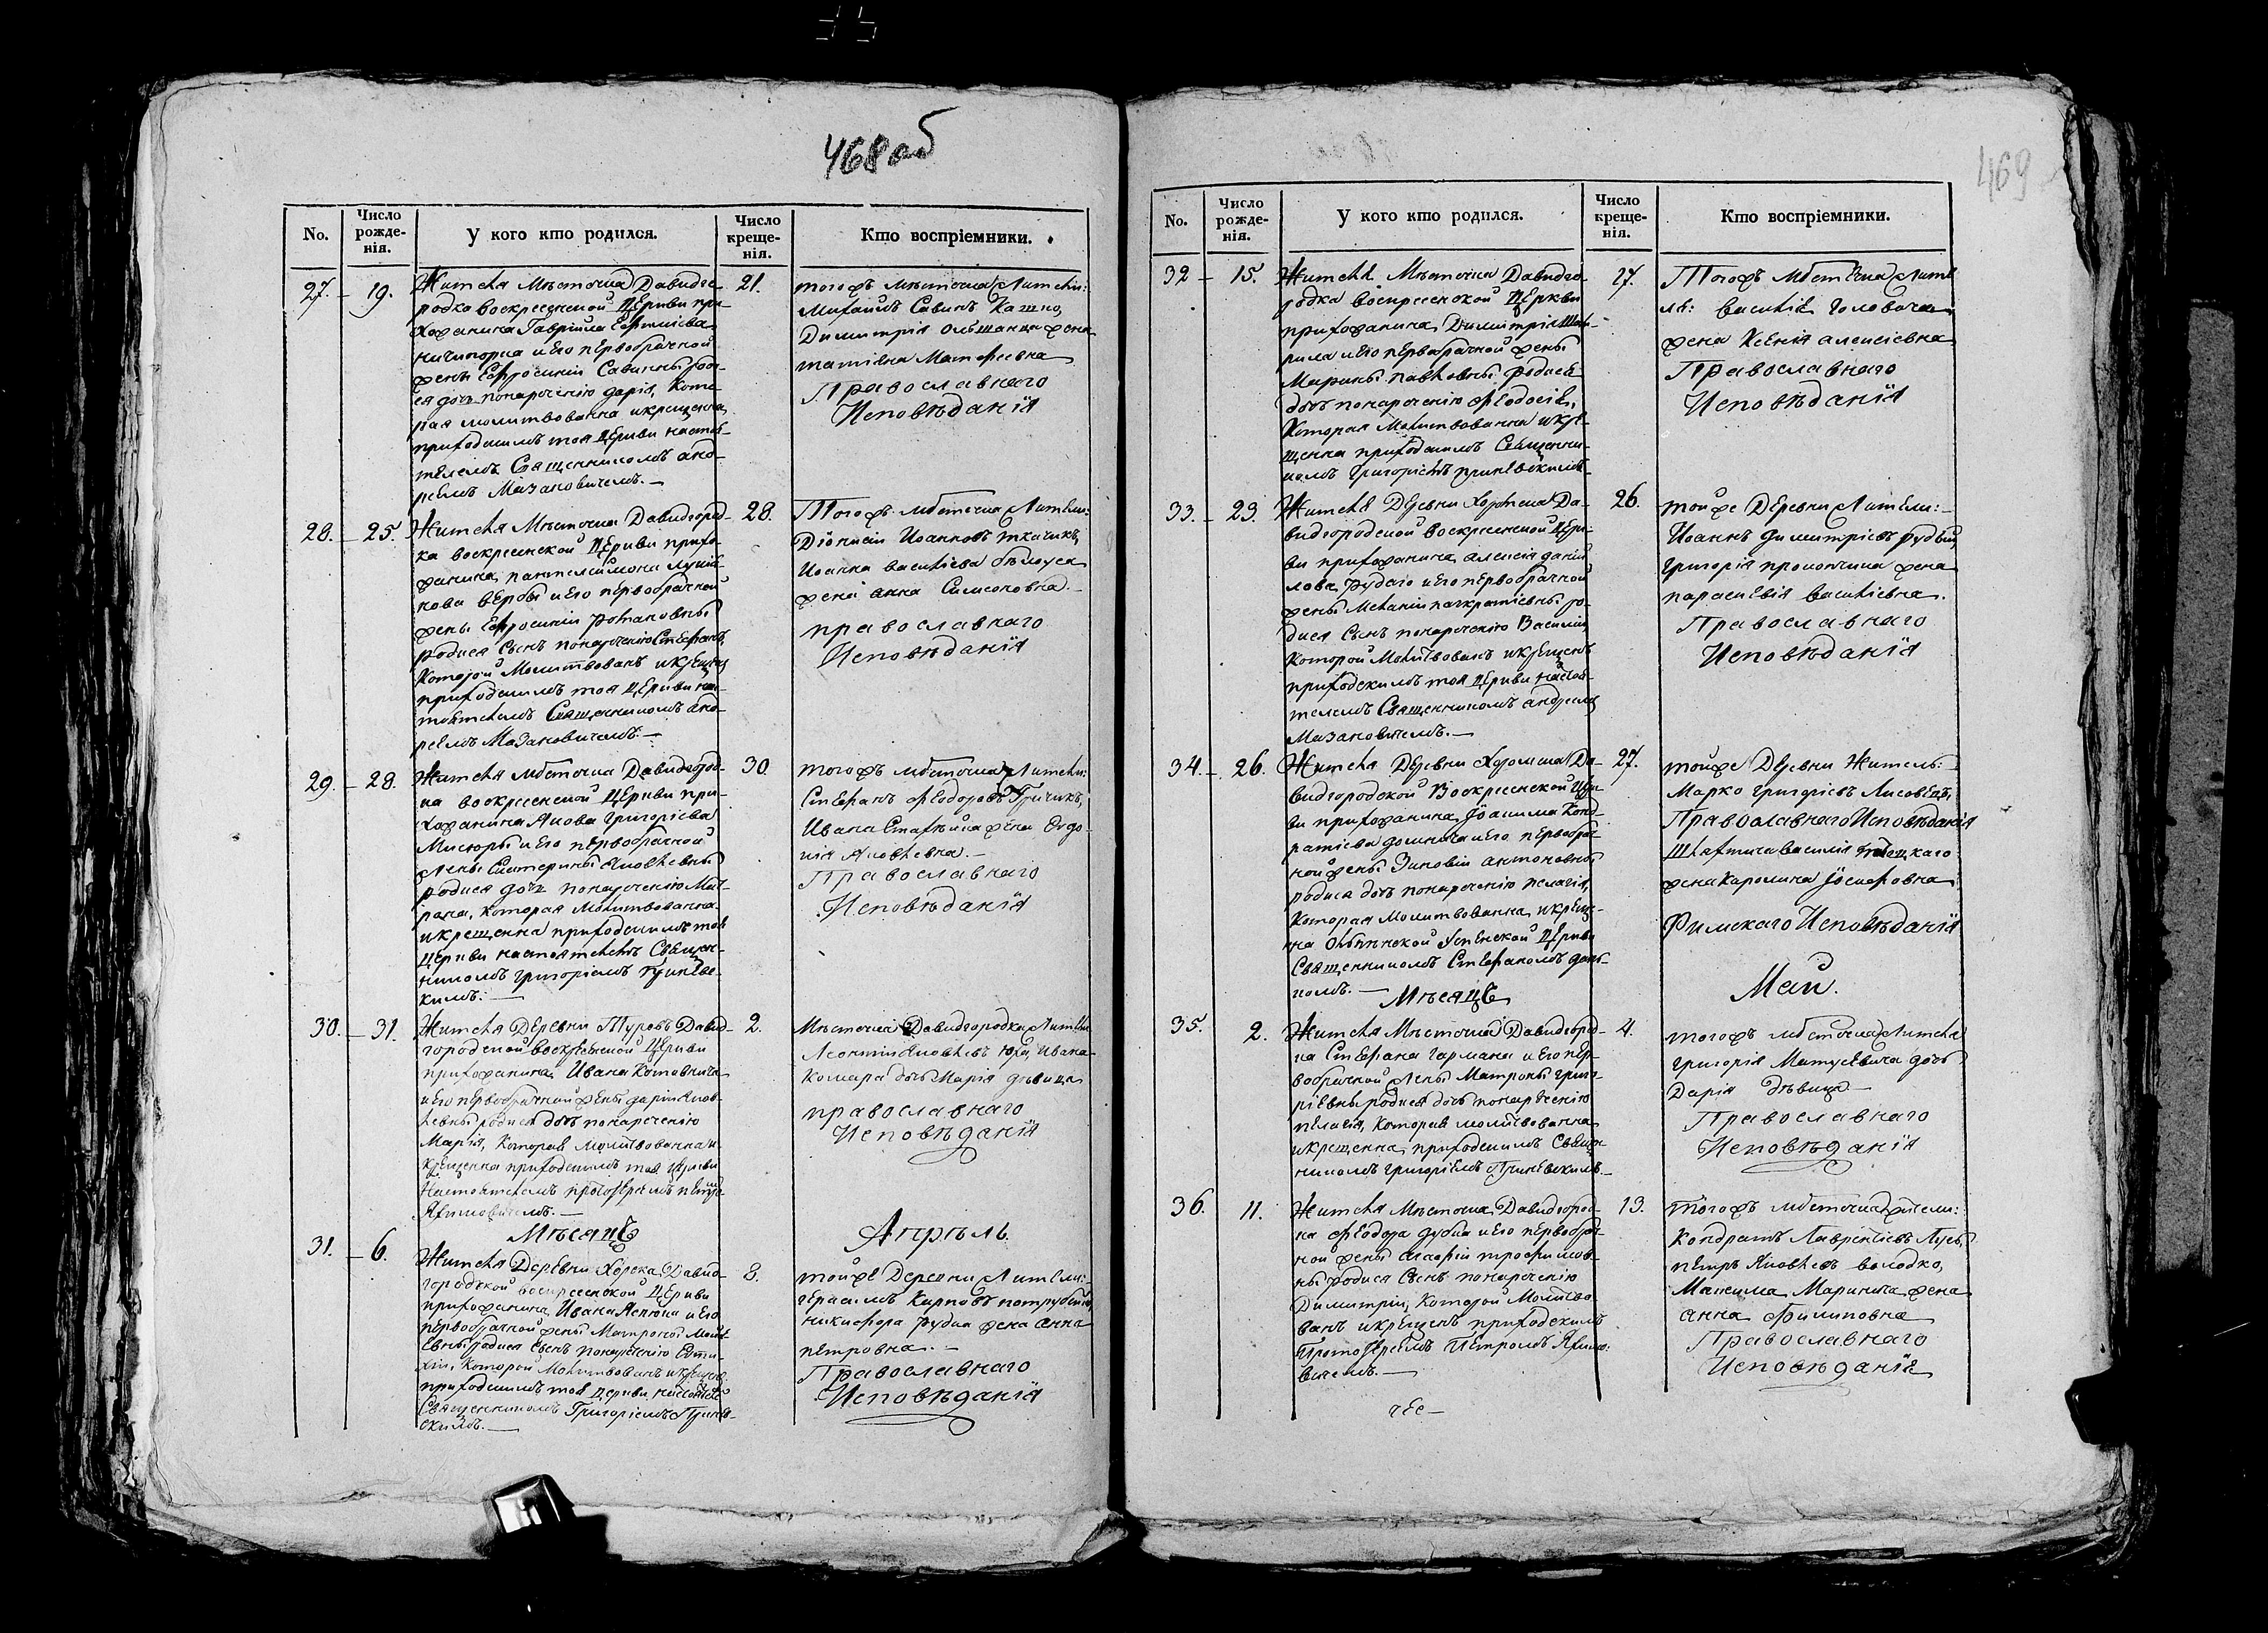 468 об
No.
Число рожде-нія.
У кого кто родился.
Число креще-нія.
Кто воспріемники.
27. 19.
Жителя Мѣстечка Давидго-
родка воскресенской Церкви при-
хожанина Гавріила
и его первобрачной
жены Ефросиніи Савинны роди-
ся дочь по наречению дарія, Кото-
рая молитвованна и крещенна
приходскимъ тоя Церкви настоя-
телемъ Священникомъ анд-
реемъ Мазановичемъ.
21.
тогожъ мѣстечка Жители:
Михаилъ Савинъ
Димитрія Ольшанца жена
татіана Матфеевна
Православнаго
Исповѣданія
28. 25.
Жителя Мѣстечка Давидгород-
ка воскресенской Церкви прихо-
жанина пантелеимона
вербы и его первобрачной
жены Ефросиніи Романовны
родися Сынъ по нареченію Стефанъ,
Которой Молитвованъ и крещенъ
приходскимъ тоя Церкви нас-
тоятелемъ Священникомъ анд-
реемъ Мазановичемъ.
28.
Тогожъ мѣстечка Жители:
Діонисій Иоанновъ ткачикъ,
Иоанна василіева бѣлоуса
жена анна Симеоновна.
православнаго
Исповѣданія
29. 28.
Жителя мѣстечка Давидгород-
ка воскресенской Церкви при-
хожанина Якова Григоріева
Мисюры и его первобрачной
жены Екатерины Яковлевны
родися дочь по нареченію
которая Молитвованна
и крещенна приходскимъ тоя
Церкви настоятелемъ Священ-
никомъ григоріемъ Гриневс-
кимъ.
30.
тогожъ мѣстечка Жители:
Стефанъ Феодоровъ Гричикъ,
Ивана жена Овдо-
кія Яковлевна.
Православнаго
Исповѣданія
30. 31.
Жителя Деревни Туровъ Давид-
городской воскресенской Церкви
прихожанина Ивана Котовича
и его первобрачной жены даріи Яков-
левны родися дочь по нареченію
Марія, Которая молитвованна и
крещенна приходскимъ тоя Церкви
Настоятелемъ протоіереемъ петромъ
Яхимовичемъ.
2.
Мѣстечка Давидгородка Жители
Леонтій Яковлевъ Юха, Ивана
комара дочь Марія дѣвица
православнаго
Исповѣданія
Мѣсяцъ Апрѣль.
31. 6.
Жителя Деревни Хорска Давид-
городской воскресенской Церкви
прихожанина Ивана и его
первобрачной жены Матроны Моисе-
евны родися Сынъ по нареченію Евти-
хій, Которой Молитвованъ и крещенъ
приходскимъ тоя Церкви настоятелемъ
Священникомъ Григоріемъ Гринев-
скимъ.
8.
тойже Деревни Жители:
герасимъ Карповъ
никифора Рудка жена анна
петровна.
Православнаго
Исповѣданія
469
No.
Число рожде-нія.
У кого кто родился.
Число креще-нія.
Кто воспріемники.
32 15.
Жителя Мѣстечка Давидго-
родка воскресенской Церкви
прихожанина Димитрія
и его первобрачной жены
Марины павловны родися
дочь по нареченію Феодосія,
Которая Молитвованна и кре-
щенна приходскимъ Священни-
комъ Григоріемъ Гриневскимъ
17.
Тогожъ мѣстечка Жите-
ли: василія Головача
жена Ксенія алексіевна
Православнаго
Исповѣданія
33. 23.
Жителя Деревни Хоромска Да-
видгородской воскресенской Церк-
ви прихожанина алексія даній-
лова Рудаго и его первобрачной
жены Меланіи панкратіевны ро-
дися Сынъ по нареченію Василій,
Которой Молитвованъ и крещенъ
приходскимъ тоя Церкви настоя-
телемъ Священникомъ андреемъ
Мазановичемъ.
26.
тойже Деревни Жители:
Иоаннъ димитріевъ рудый,
григорія прокопчика жена
параскевія василіевна.
Православнаго
Исповѣданія
34. 26.
Жителя Деревни Хоромска Да-
видгородской Воскресенской Церк-
ви прихожанина Іоакима Конд-
ратіева и его первобрач-
ной жены Зиновіи антоновны
родися дочь по нареченію пелагія,
Которая Молитвованна и креще-
нна Ольпинской Успенской Церкви
Священникомъ Стефаномъ
27.
тойже Деревни Житель:
Марко Григоріевъ Лисовецъ,
Православнаго Исповѣданія
Шляхтича василія
жена Каролина Іосифовна
Римскаго Исповѣданія
Мѣсяцъ Май.
35. 2.
Жителя Мѣстечка Давидгород-
ка Стефана гармаша и его пер-
вобрачной жены Матроны григо-
ріевны родися дочь по нареченію
пелагія, Которая молитвованна
и крещенна приходскимъ Священ-
никомъ григоріемъ Гриневскимъ
4.
тогожъ мѣстечка Жителя
григорія Матусевича дочь
Дарія дѣвица
Православнаго
Исповѣданія
36. 11.
Жителя Мѣстечка Давидгород-
ка Феодора и его первобрач-
ной жены агафіи трофимов-
ны родися Сынъ по нареченію
Димитрій, Которой Молитво-
ванъ и крещенъ приходскимъ
Протоіереемъ Петромъ Яхимо-
вичемъ.
13.
тогожъ мѣстечка жители:
Кондратъ Лаврентіевъ
петръ Яковлевъ володко,
Максима Маринича жена
анна Филиповна
Православнаго
Исповѣданія